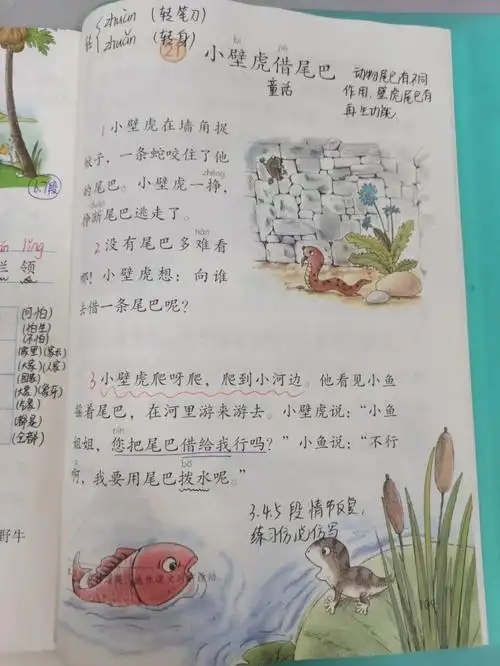 转
zhuàn (轻笔刀)
zhuǎn (转身)
21
bì jiè
小壁虎借尾巴
童话
动物尾巴有不同
作用,壁虎尾巴有
再生功能
1小壁虎在墙角捉
蚊子,一条蛇咬住了他
zhèng
的尾巴。小壁虎一挣,
duàn
挣断尾巴逃走了。
nán
2没有尾巴多难看
哪!小壁虎想:向谁
去借一条尾巴呢?
3小壁虎爬呀爬,爬到小河边。他看见小鱼
摇着尾巴,在河里游来游去。小壁虎说:“小鱼
nín
姐姐,您把尾巴借给我行吗?”小鱼说:“不行
bō
啊,我要用尾巴拨水呢。”
3.4.5段情节反复,
练习仿说仿写
109
6.7段
lǐng
领
(可怕)
(怕生)
(不怕)
(家里)(家长)
(大家)(人家)
(回家)
(全都)
野牛